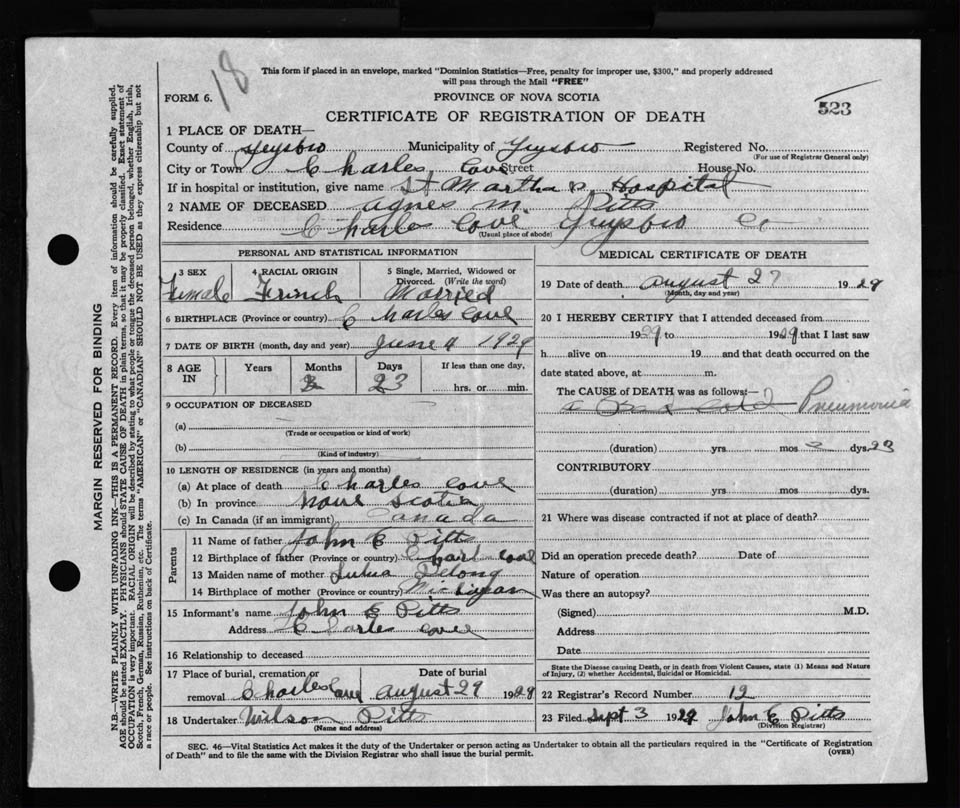 18
This form if placed in an envelope, marked "Dominion Statistics—Free, penalty for improper use, $300," and properly addressed
will pass through the Mail "FREE"
FORM 6.
PROVINCE OF NOVA SCOTIA
523
CERTIFICATE OF REGISTRATION OF DEATH
1 PLACE OF DEATH—
County of Guysbro Municipality of Guysbro Registered No.
(For use of Registrar General only)
City or Town Charles Cove Street House No.
If in hospital or institution, give name St Martha s Hospital
2 NAME OF DECEASED Agnes M. Pitts
Residence Charles Cove Guysbro Co
(Usual place of abode)
PERSONAL AND STATISTICAL INFORMATION
3 SEX 4 RACIAL ORIGIN 5 Single, Married, Widowed or Divorced. (Write the word)
Female French Married
6 BIRTHPLACE (Province or country) Charles Cove
7 DATE OF BIRTH (month, day and year) June 4 1929
8 AGE IN Years Months Days If less than one day,
2 23 hrs. or min.
9 OCCUPATION OF DECEASED
(a)
(Trade or occupation or kind of work)
(b)
(Kind of industry)
10 LENGTH OF RESIDENCE (in years and months)
(a) At place of death Charles Cove
(b) In province Nova Scotia
(c) In Canada (if an immigrant) Canada
Parents
11 Name of father John E Pitts
12 Birthplace of father (Province or country) Charl Cove
13 Maiden name of mother Delong
14 Birthplace of mother (Province or country) Michigan
15 Informant's name John E Pitts
Address Charles Cove
16 Relationship to deceased
17 Place of burial, cremation or removal Charles Cove Date of burial August 29 1929
18 Undertaker Wilson Pitts
(Name and address)
MEDICAL CERTIFICATE OF DEATH
19 Date of death August 27 1929
(Month, day and year)
20 I HEREBY CERTIFY that I attended deceased from
1929 to 1929 that I last saw
h alive on 19 and that death occurred on the
date stated above, at m.
The CAUSE of DEATH was as follows:—
a Cold Pneumonia
(duration) yrs mos 3 dys. 23
CONTRIBUTORY
(duration) yrs mos. dys.
21 Where was disease contracted if not at place of death?
Did an operation precede death? Date of
Nature of operation
Was there an autopsy?
(Signed) M.D.
Address
Date
State the Disease causing Death, or in death from Violent Causes, state (1) Means and Nature
of Injury, (2) whether Accidental, Suicidal or Homicidal.
22 Registrar's Record Number 12
23 Filed Sept 3 1929 John E Pitts
(Division Registrar)
SEC. 46—Vital Statistics Act makes it the duty of the Undertaker or person acting as Undertaker to obtain all the particulars required in the "Certificate of Registration
of Death" and to file the same with the Division Registrar who shall issue the burial permit.
(OVER)
MARGIN RESERVED FOR BINDING
N.B.—WRITE PLAINLY WITH UNFADING INK—THIS IS A PERMANENT RECORD. Every item of information should be carefully supplied.
AGE should be stated EXACTLY. PHYSICIANS should STATE CAUSE OF DEATH in plain terms, so that it may be properly classified. Exact statement of
OCCUPATION is very important. RACIAL ORIGIN will be described by stating to what people or tongue the deceased person belonged, whether English, Irish,
Scotch, French, German, Russian, Ruthenian, etc. The terms "AMERICAN" or "CANADIAN" SHOULD NOT BE USED as they express citizenship but not
a race or people. See instructions on back of Certificate.